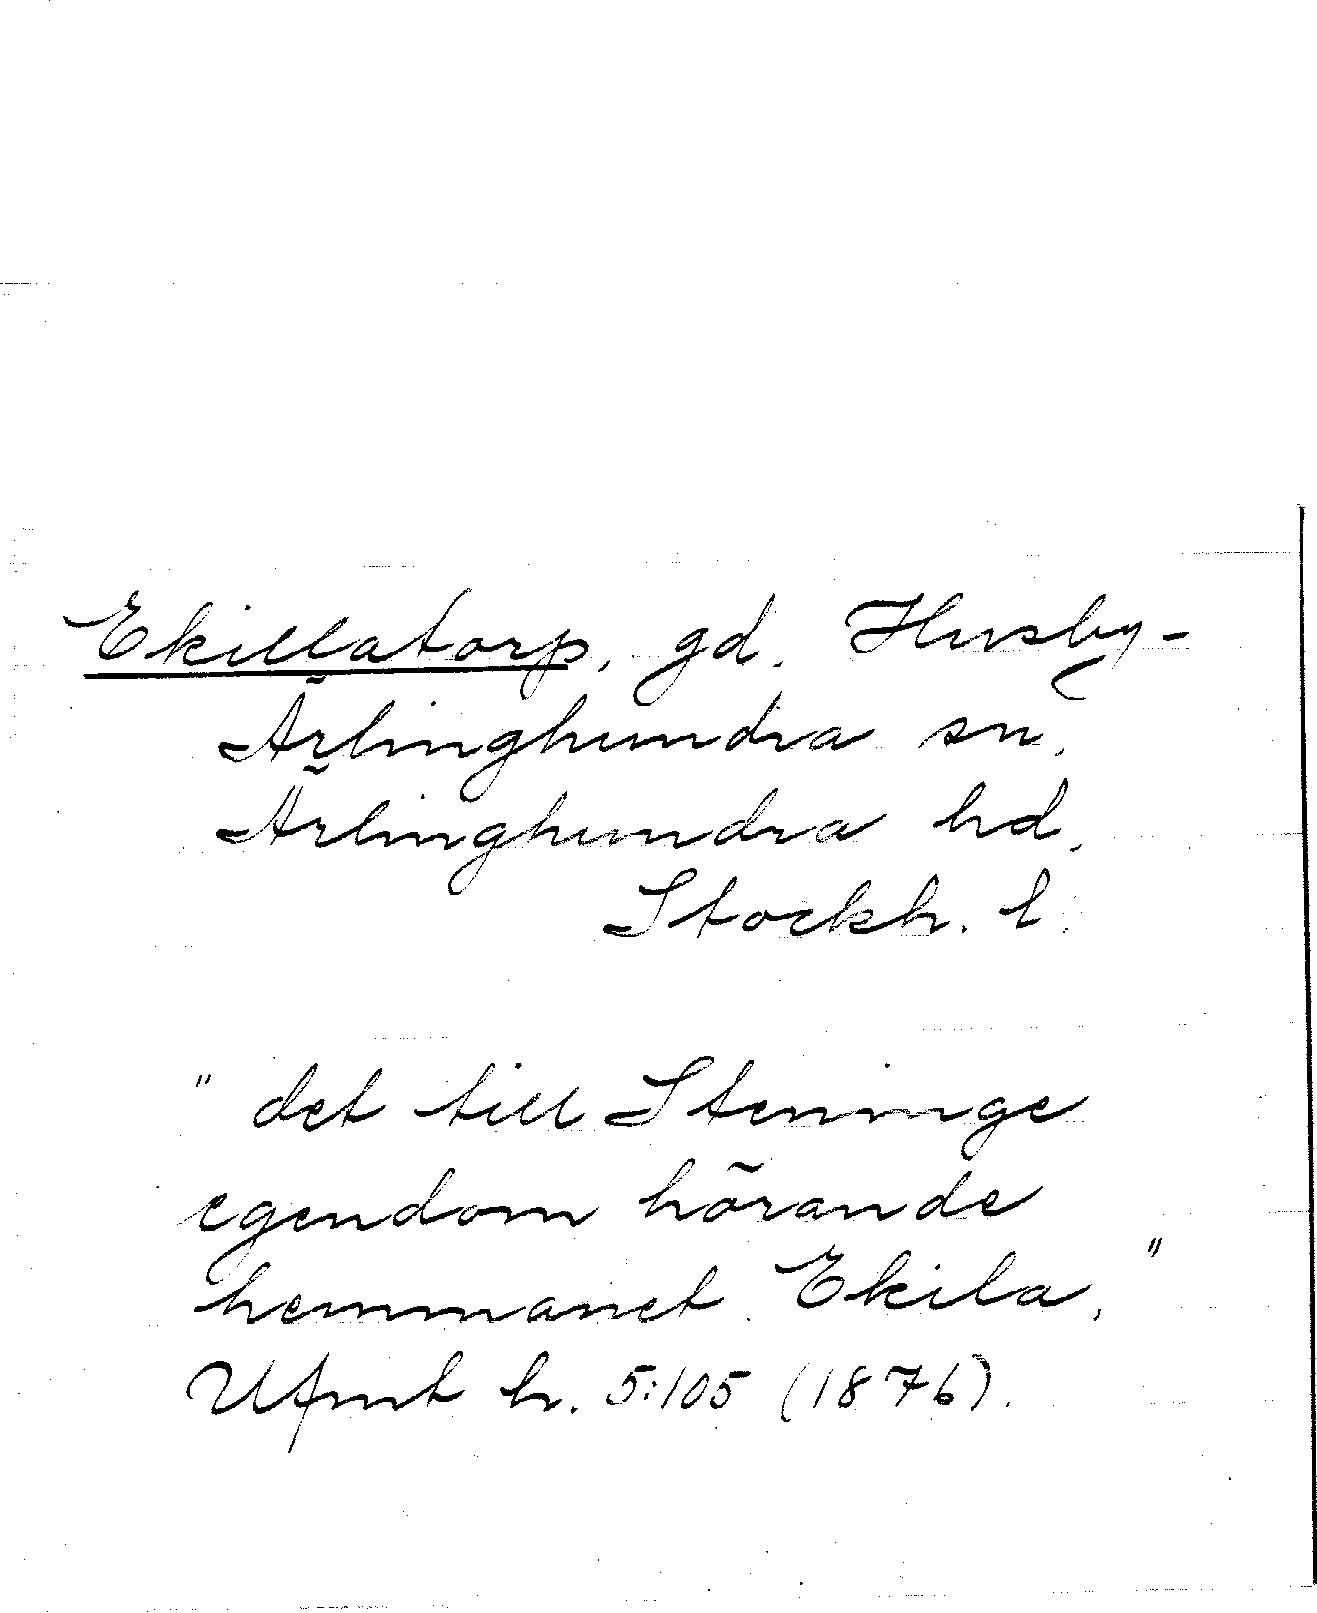 Ekillatorp, gd. Husby-
Ärlinghundra sn,
Ärlinghundra hd,
Stockh. l.
" det till Steninge
egendom hörande
hemmanet Ekila, "
Ufmt h. 5:105 (1876).